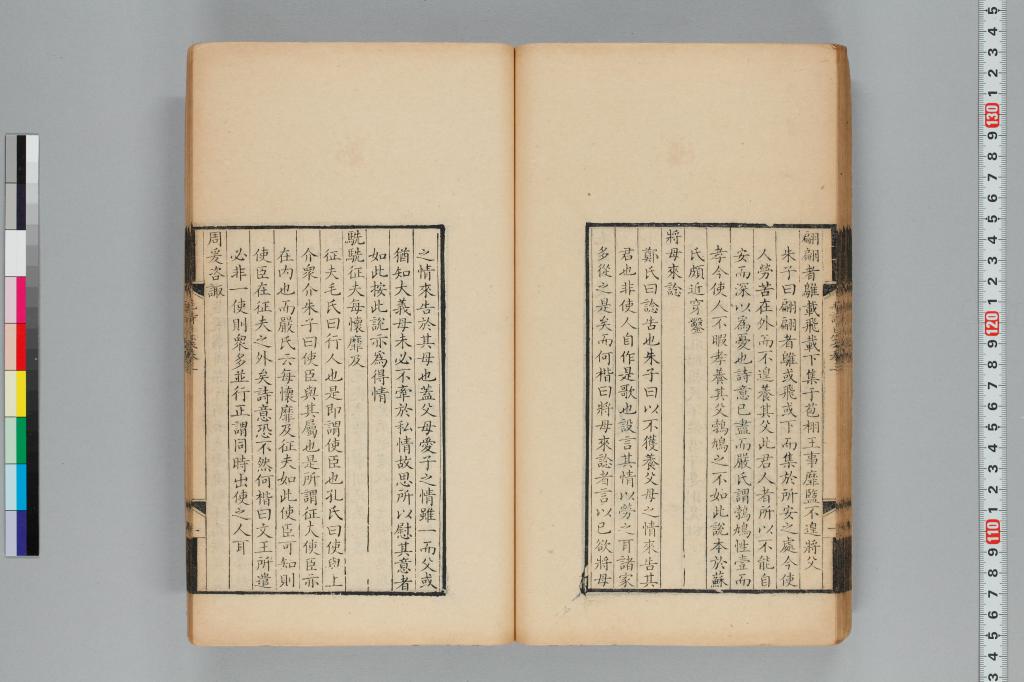 翩翩者鵻載飛載下集于苞栩王事靡盬不遑將父
朱子曰翩翩者鵻或飛或下而集於所安之處今使
人勞苦在外而不遑養其父此君人者所以不能自
安而深以為憂也詩意已盡而嚴氏謂鵓鳩性壹而
孝今使人不暇孝養其父鵓鳩之不如此說本於蘇
氏頗近穿鑿
將母來諗
鄭氏曰諗告也朱子曰以不獲養父母之情來告其
君也非使人自作是歌也設言其情以勞之耳諸家
多從之是矣而何楷曰將母來諗者言以已欲將母
之情來告於其母也蓋父母愛子之情雖一而父或
猶知大義母未必不牽於私情故思所以慰其意者
如此按此說亦為得情
駪駪征夫每懷靡及
征夫毛氏曰行人也是即謂使臣也孔氏曰使與上
介衆介朱子曰使臣與其屬也是所謂征夫使臣亦
在內也而嚴氏云每懷靡及征夫如此使臣可知則
使臣在征夫之外矣詩意恐不然何楷曰文王所遣
必非一使則衆多並行正謂同時出使之人耳
周爰咨諏